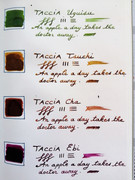 TACCIA Uguisu
An apple a day takes the
doctor away.
TACCIA Tsuchi
An apple a day takes the
doctor away.
TACCIA Cha
An apple a day takes the
doctor away.
TACCIA Ebi
An apple a day takes the
doctor away.